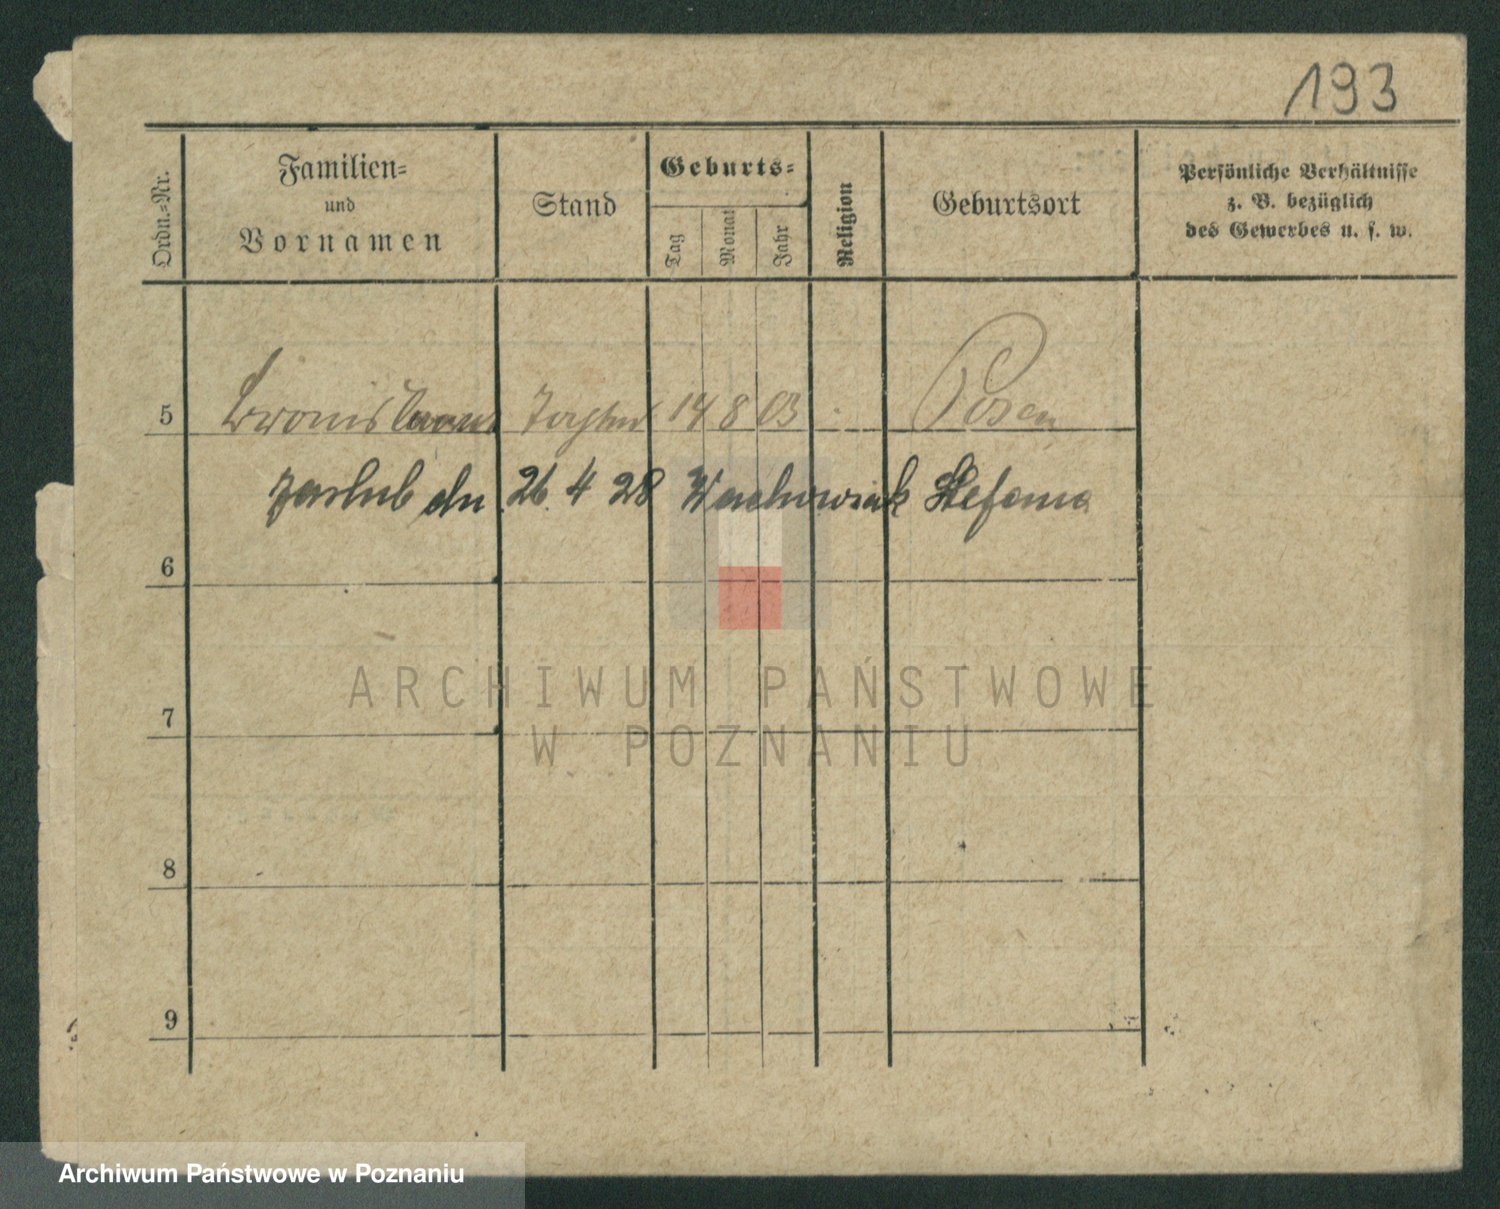 193
Ordn.-Nr.
Familien-
und
Vornamen
Stand
Geburts-
Tag
Monat
Jahr
Religion
Geburtsort
Persönliche Verhältnisse
z. B. bezüglich
des Gewerbes u. s. w.
5 14 8 03 Posen
dn 26. 4 28 Wachowiak Stefania
6
7
8
9
ARCHIWUM PAŃSTWOWE
W POZNANIU
Archiwum Państwowe w Poznaniu